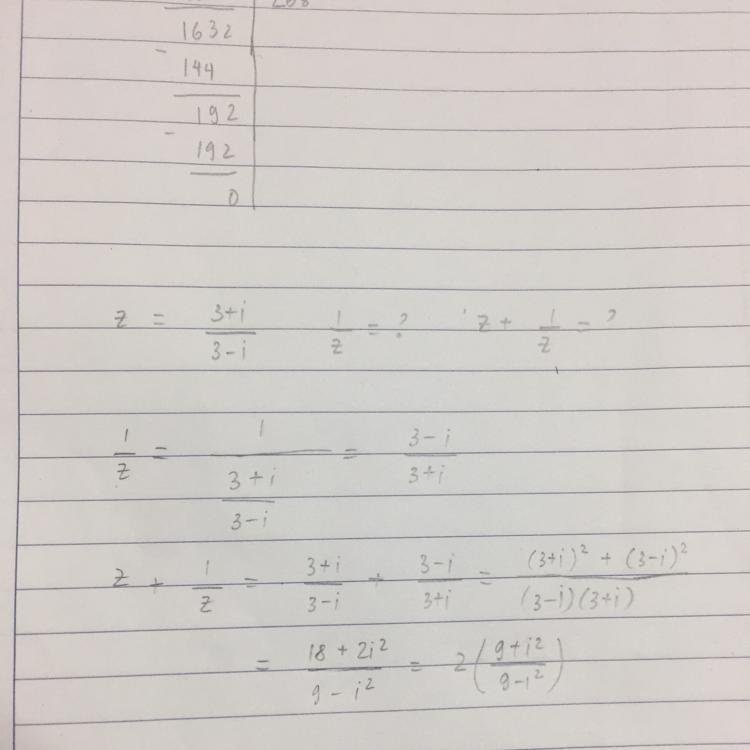 1632
- 144
192
- 192
0
z = (3+i)/(3-i) 1/z = ? z + 1/z = ?
1/z = 1/((3+i)/(3-i)) = (3-i)/(3+i)
z + 1/z = (3+i)/(3-i) + (3-i)/(3+i) = ((3+i)² + (3-i)²)/((3-i)(3+i))
= (18 + 2i²)/(9 - i²) = 2((9+i²)/(9-i²))